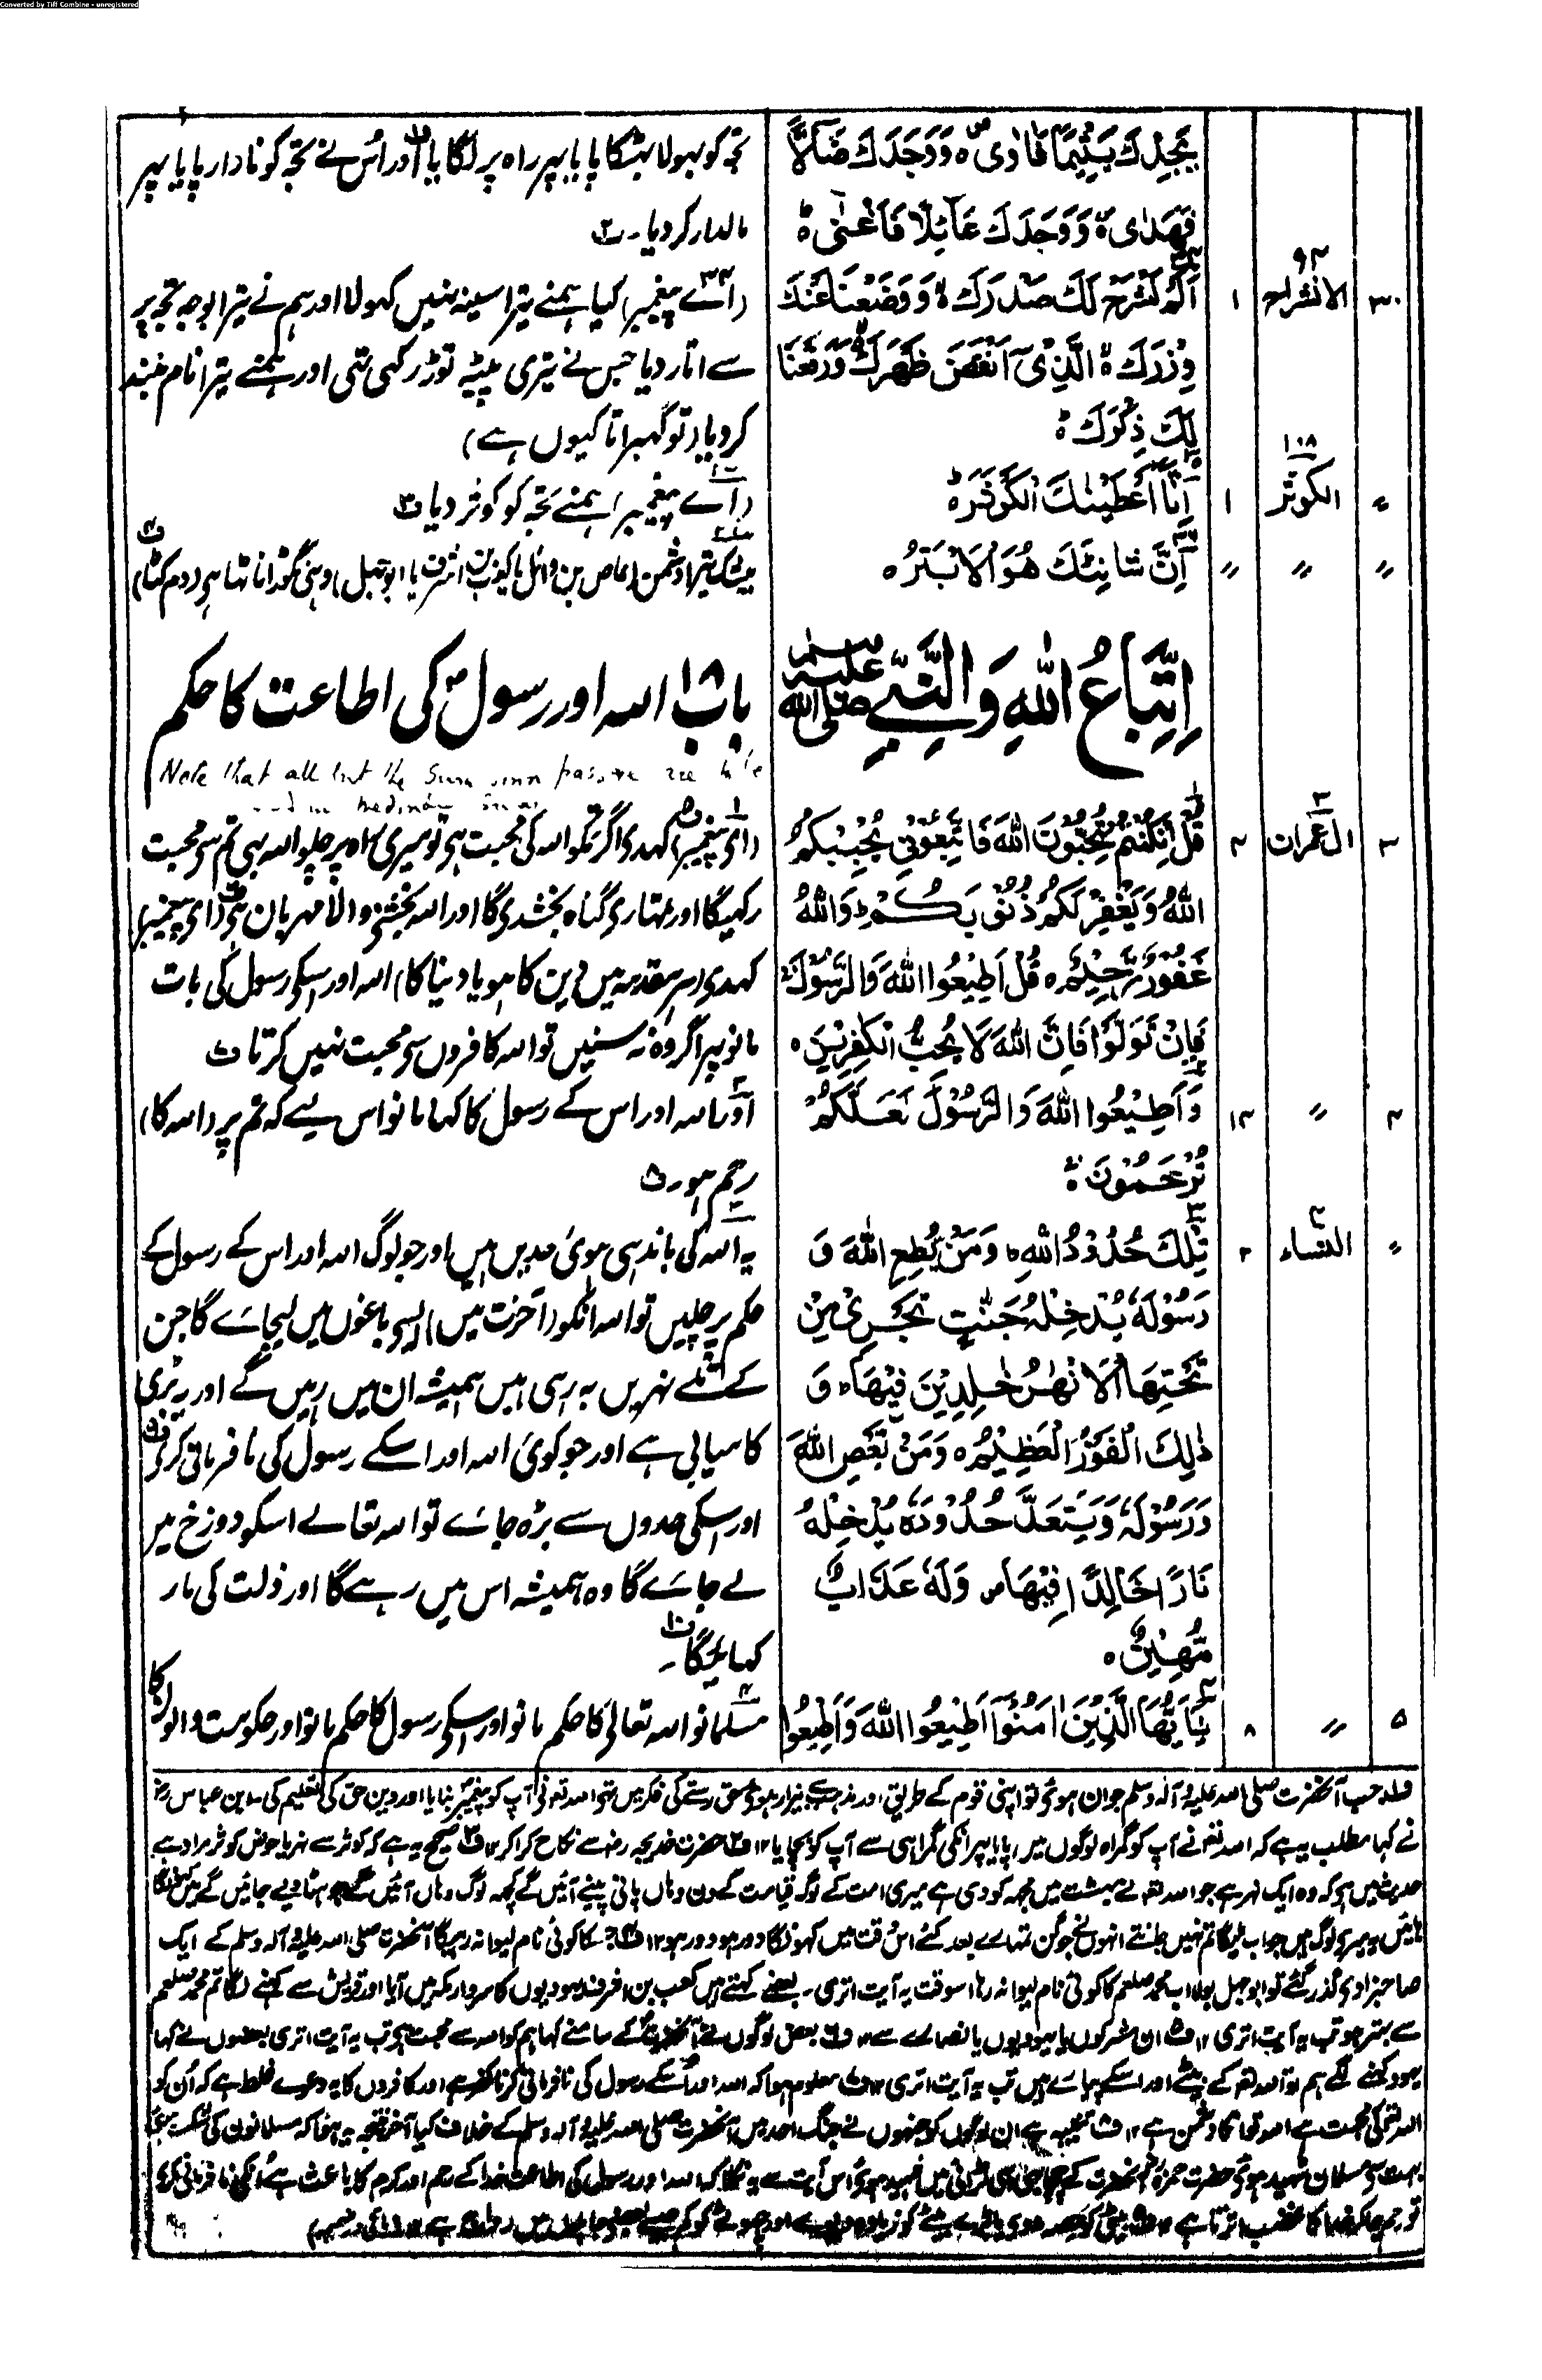 Converted by Tiff Combine - unregistered
يَجِدْكَ يَتِيْمًا فَاٰوٰى ۝ وَوَجَدَكَ ضَآلًّا
فَهَدٰى ۝ وَوَجَدَكَ عَآئِلًا فَاَغْنٰى ۝
تجہ کو بہولا بہٹکا پایا پہر راہ پر لگایا اور اُس نے تجہ کو نادار پایا پہر
مالدار کردیا۔ ف۲
۳۰ الانشراح ۹۴ ۱
اَلَمْ نَشْرَحْ لَكَ صَدْرَكَ ۝ وَوَضَعْنَا عَنْكَ
وِزْرَكَ ۝ الَّذِيْٓ اَنْقَضَ ظَهْرَكَ ۝ وَرَفَعْنَا
لَكَ ذِكْرَكَ ۝
(اے پیغمبر) کیا ہمنے تیرا سینہ نہیں کہولا اور ہم نے تیرا بوجہ تجہ پر
سے اتار دیا جس نے تیری پیٹہ توڑ رکہی تہی اور ہمنے تیرا نام بلند
کردیا (تو گہبراتا کیوں ہے)
〃 الكوثر ۱۰۸ ۱
اِنَّآ اَعْطَيْنٰكَ الْكَوْثَرَ ۝
(اے پیغمبر) ہمنے تجہ کو کوثر دیا ف۳
〃 〃 〃
اِنَّ شَانِئَكَ هُوَ الْاَبْتَرُ ۝
بیشک تیرا دشمن (عاص بن وائل یا کعب بن اشرف یا ابوجہل) وہی نگوڑا ناٹہا ہے (دم کٹا) ف۴
اِتِّبَاعُ اللّٰهِ وَالنَّبِيِّ صلى الله عليه وسلم
باب ۱۸ اللہ اور رسول کی اطاعت کا حکم
Note that all but the Sura passage are
in Medina
۳ اٰل عمران ۳ ۴
قُلْ اِنْ كُنْتُمْ تُحِبُّوْنَ اللّٰهَ فَاتَّبِعُوْنِيْ يُحْبِبْكُمُ
اللّٰهُ وَيَغْفِرْ لَكُمْ ذُنُوْبَكُمْ ۭ وَاللّٰهُ
غَفُوْرٌ رَّحِيْمٌ ۝ قُلْ اَطِيْعُوا اللّٰهَ وَالرَّسُوْلَ ۚ
فَاِنْ تَوَلَّوْا فَاِنَّ اللّٰهَ لَا يُحِبُّ الْكٰفِرِيْنَ ۝
(اے پیغمبر) کہدی اگر تمکو اللہ کی محبت ہی تو میری راہ پر چلو اللہ بہی تم سی محبت
رکہیگا اور تمہاری گناہ بخشدی گا اور اللہ بخشنی والا مہربان ہی (ای پیغمبر)
کہدی (ہر مقدمہ میں دین کا ہو یا دنیا کا) اللہ اور اسکی رسول کی بات
مانو پہر اگر وہ نہ سنیں تو اللہ کافروں سی محبت نہیں کرتا ف۷
۴ 〃 ۱۴
وَاَطِيْعُوا اللّٰهَ وَالرَّسُوْلَ لَعَلَّكُمْ
تُرْحَمُوْنَ ۝
اور اللہ اور اس کے رسول کا کہا مانو اس لیے کہ تم پر (اللہ کا)
رحم ہو۔ ف۸
〃 النساء ۴ ۲
تِلْكَ حُدُوْدُ اللّٰهِ ۭ وَمَنْ يُّطِعِ اللّٰهَ وَ
رَسُوْلَهٗ يُدْخِلْهُ جَنّٰتٍ تَجْرِيْ مِنْ
تَحْتِهَا الْاَنْهٰرُ خٰلِدِيْنَ فِيْهَا ۭ وَ
ذٰلِكَ الْفَوْزُ الْعَظِيْمُ ۝ وَمَنْ يَّعْصِ اللّٰهَ
وَرَسُوْلَهٗ وَيَتَعَدَّ حُدُوْدَهٗ يُدْخِلْهُ
نَارًا خَالِدًا فِيْهَا ۠ وَلَهٗ عَذَابٌ
مُّهِيْنٌ ۝
یہ اللہ کی باندہی ہوئی حدیں ہیں اور جو لوگ اللہ اور اس کے رسول کے
حکم پر چلیں تو اللہ انکو (آخرت میں) ایسی باغوں میں لیجاۓ گا جن
کے تلے نہریں بہ رہی ہیں ہمیشہ ان میں رہیں گے اور یہ بڑی
کامیابی ہے اور جو کوئی اللہ اور اسکے رسول کی نافرمانی کری ف۹
اور اسکی حدوں سے بڑہ جاۓ تو اللہ تعالے اسکو دوزخ میں
لے جاۓ گا وہ ہمیشہ اس میں رہے گا اور ذلت کی مار
کہائیگا۔ ف۱۰
۵ 〃 ۸
يٰٓاَيُّهَا الَّذِيْنَ اٰمَنُوْٓا اَطِيْعُوا اللّٰهَ وَاَطِيْعُوا
مسلمانو اللہ تعالیٰ کا حکم مانو اور اسکی رسول کا حکم مانو اور حکومت والوں کا
ف۱ جب آنحضرت صلی اللہ علیہ وآلہ وسلم جوان ہوئے تو اپنی قوم کے طریق اور مذہب سے بیزار ہو حق رستے کی فکر میں تہے اللہ تعہ نے آپ کو پیغمبر بنایا اور دین حق کی تعلیم کی۔ ابن عباس رض
نے کہا مطلب یہ ہے کہ اللہ تعہ نے آپ کو گمراہ لوگوں میں پایا پہر انکی گمراہی سے آپ کو بچایا ۱۲ ف۲ حضرت خدیجہ رض سے نکاح کراکر ۱۲ ف۳ صحیح یہ ہے کہ کوثر سے نہر یا حوض کوثر مراد ہے
حدیث میں ہے کہ وہ ایک نہر ہے جو اللہ تعہ نے بہشت میں مجہہ کو دی ہے میری امت کے لوگ قیامت کے دن وہاں پانی پینے آئیں گے کچہہ لوگ وہاں آئیں گے ہٹا دیے جائیں گے میں کہونگا
ہائیں یہ میری لوگ ہیں جواب ملیگا تم نہیں جانتے انہوں نے جو گن تمہارے بعد کئے اُس وقت میں کہونگا دور ہو دور ہو ۱۲ ف۴ جسکا کوئی نام لیوا نہ رہیگا آنحضرت صلی اللہ علیہ وآلہ وسلم کے ایک
صاحبزادی گذر گئے تو ابو جہل بولا اب محمد صلعم کا کوئی نام لیوا نہ رہا اسوقت یہ آیت اتری۔ بعضے کہتے ہیں کعب بن اشرف یہودیوں کا سردار مکہ میں آیا اور قریش سے کہنے لگا تم محمد صلعم
سے بہتر ہو تب یہ آیت اتری ۱۲ ف۵ ان مشرکوں یا یہودیوں یا نصارے سے ۱۲ ف۶ بعض لوگوں نے آنحضرت کے سامنے کہا ہم کو اللہ سے محبت ہے تب یہ آیت اتری بعضوں نے کہا
یہود کہنے لگے ہم تو اللہ تعہ کے بیٹے اور اسکے پیارے ہیں تب یہ آیت اتری ۱۲ ف۷ معلوم ہوا کہ اللہ اور اسکے رسول کی نافرمانی کرنا کفر ہے اور کافروں کا یہ دعوے غلط ہے کہ اُن کو
اللہ تعہ کی محبت ہے اللہ تعہ انکا دشمن ہے ۱۲ ف۸ تنبیہ ہے ان لوگوں کو جنہوں نے جنگ احد میں آنحضرت صلی اللہ علیہ وآلہ وسلم کے خلاف کیا آخر نتیجہ یہ ہوا کہ مسلمانون کی شکست
بہت سی مسلمان شہید ہوئے حضرت حمزہ آنحضرت کے چچا بہی اسی لڑائی میں شہید ہوئے اس آیت سے یہ نکلا کہ اللہ اور رسول کی اطاعت خدا کے رحم اور کرم کا باعث ہے انکی نافرمانی